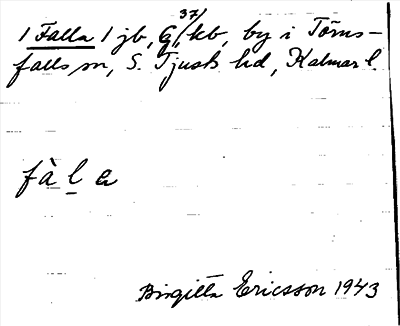 1 Falla 1 jb, G, 37/ kb, by i Törns-
falls sn, S. Tjusts hd, Kalmar l.
fà l a
Birgitta Ericsson 1943